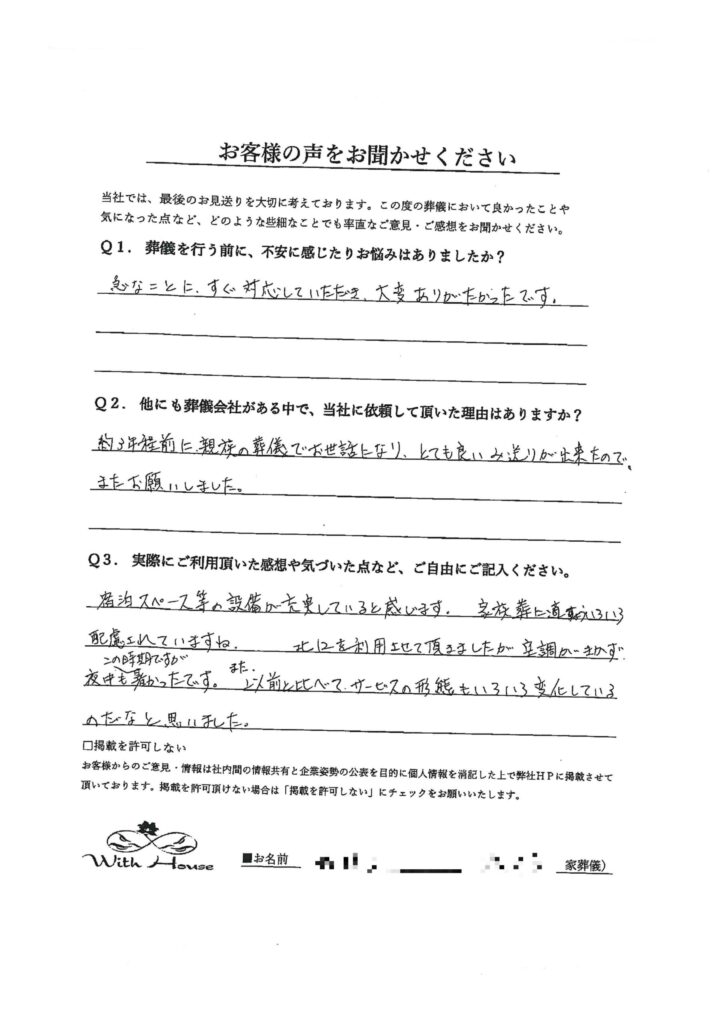 お客様の声をお聞かせください
当社では、最後のお見送りを大切に考えております。この度の葬儀において良かったことや
気になった点など、どのような些細なことでも率直なご意見・ご感想をお聞かせください。
Q1. 葬儀を行う前に、不安に感じたりお悩みはありましたか？
急なことに、すぐ対応していただき、大変ありがたかったです。
Q2. 他にも葬儀会社がある中で、当社に依頼して頂いた理由はありますか？
約3年程前に、親族の葬儀でお世話になり、とても良いみ送りが出来たので、
またお願いしました。
Q3. 実際にご利用頂いた感想や気づいた点など、ご自由にご記入ください。
宿泊スペース等の設備が充実していると感じます。 家族葬に いろいろ
配慮されていますね。 北 を利用させて頂きましたが空調が きかず
この時期ですが
夜中も暑かったです。 また、以前と比べて、サービスの形態もいろいろ変化している
のだなと思いました。
□掲載を許可しない
お客様からのご意見・情報は社内間の情報共有と企業姿勢の公表を目的に個人情報を消記した上で弊社HPに掲載させて
頂いております。掲載を許可頂けない場合は「掲載を許可しない」にチェックをお願いいたします。
With House
■お名前
家葬儀）